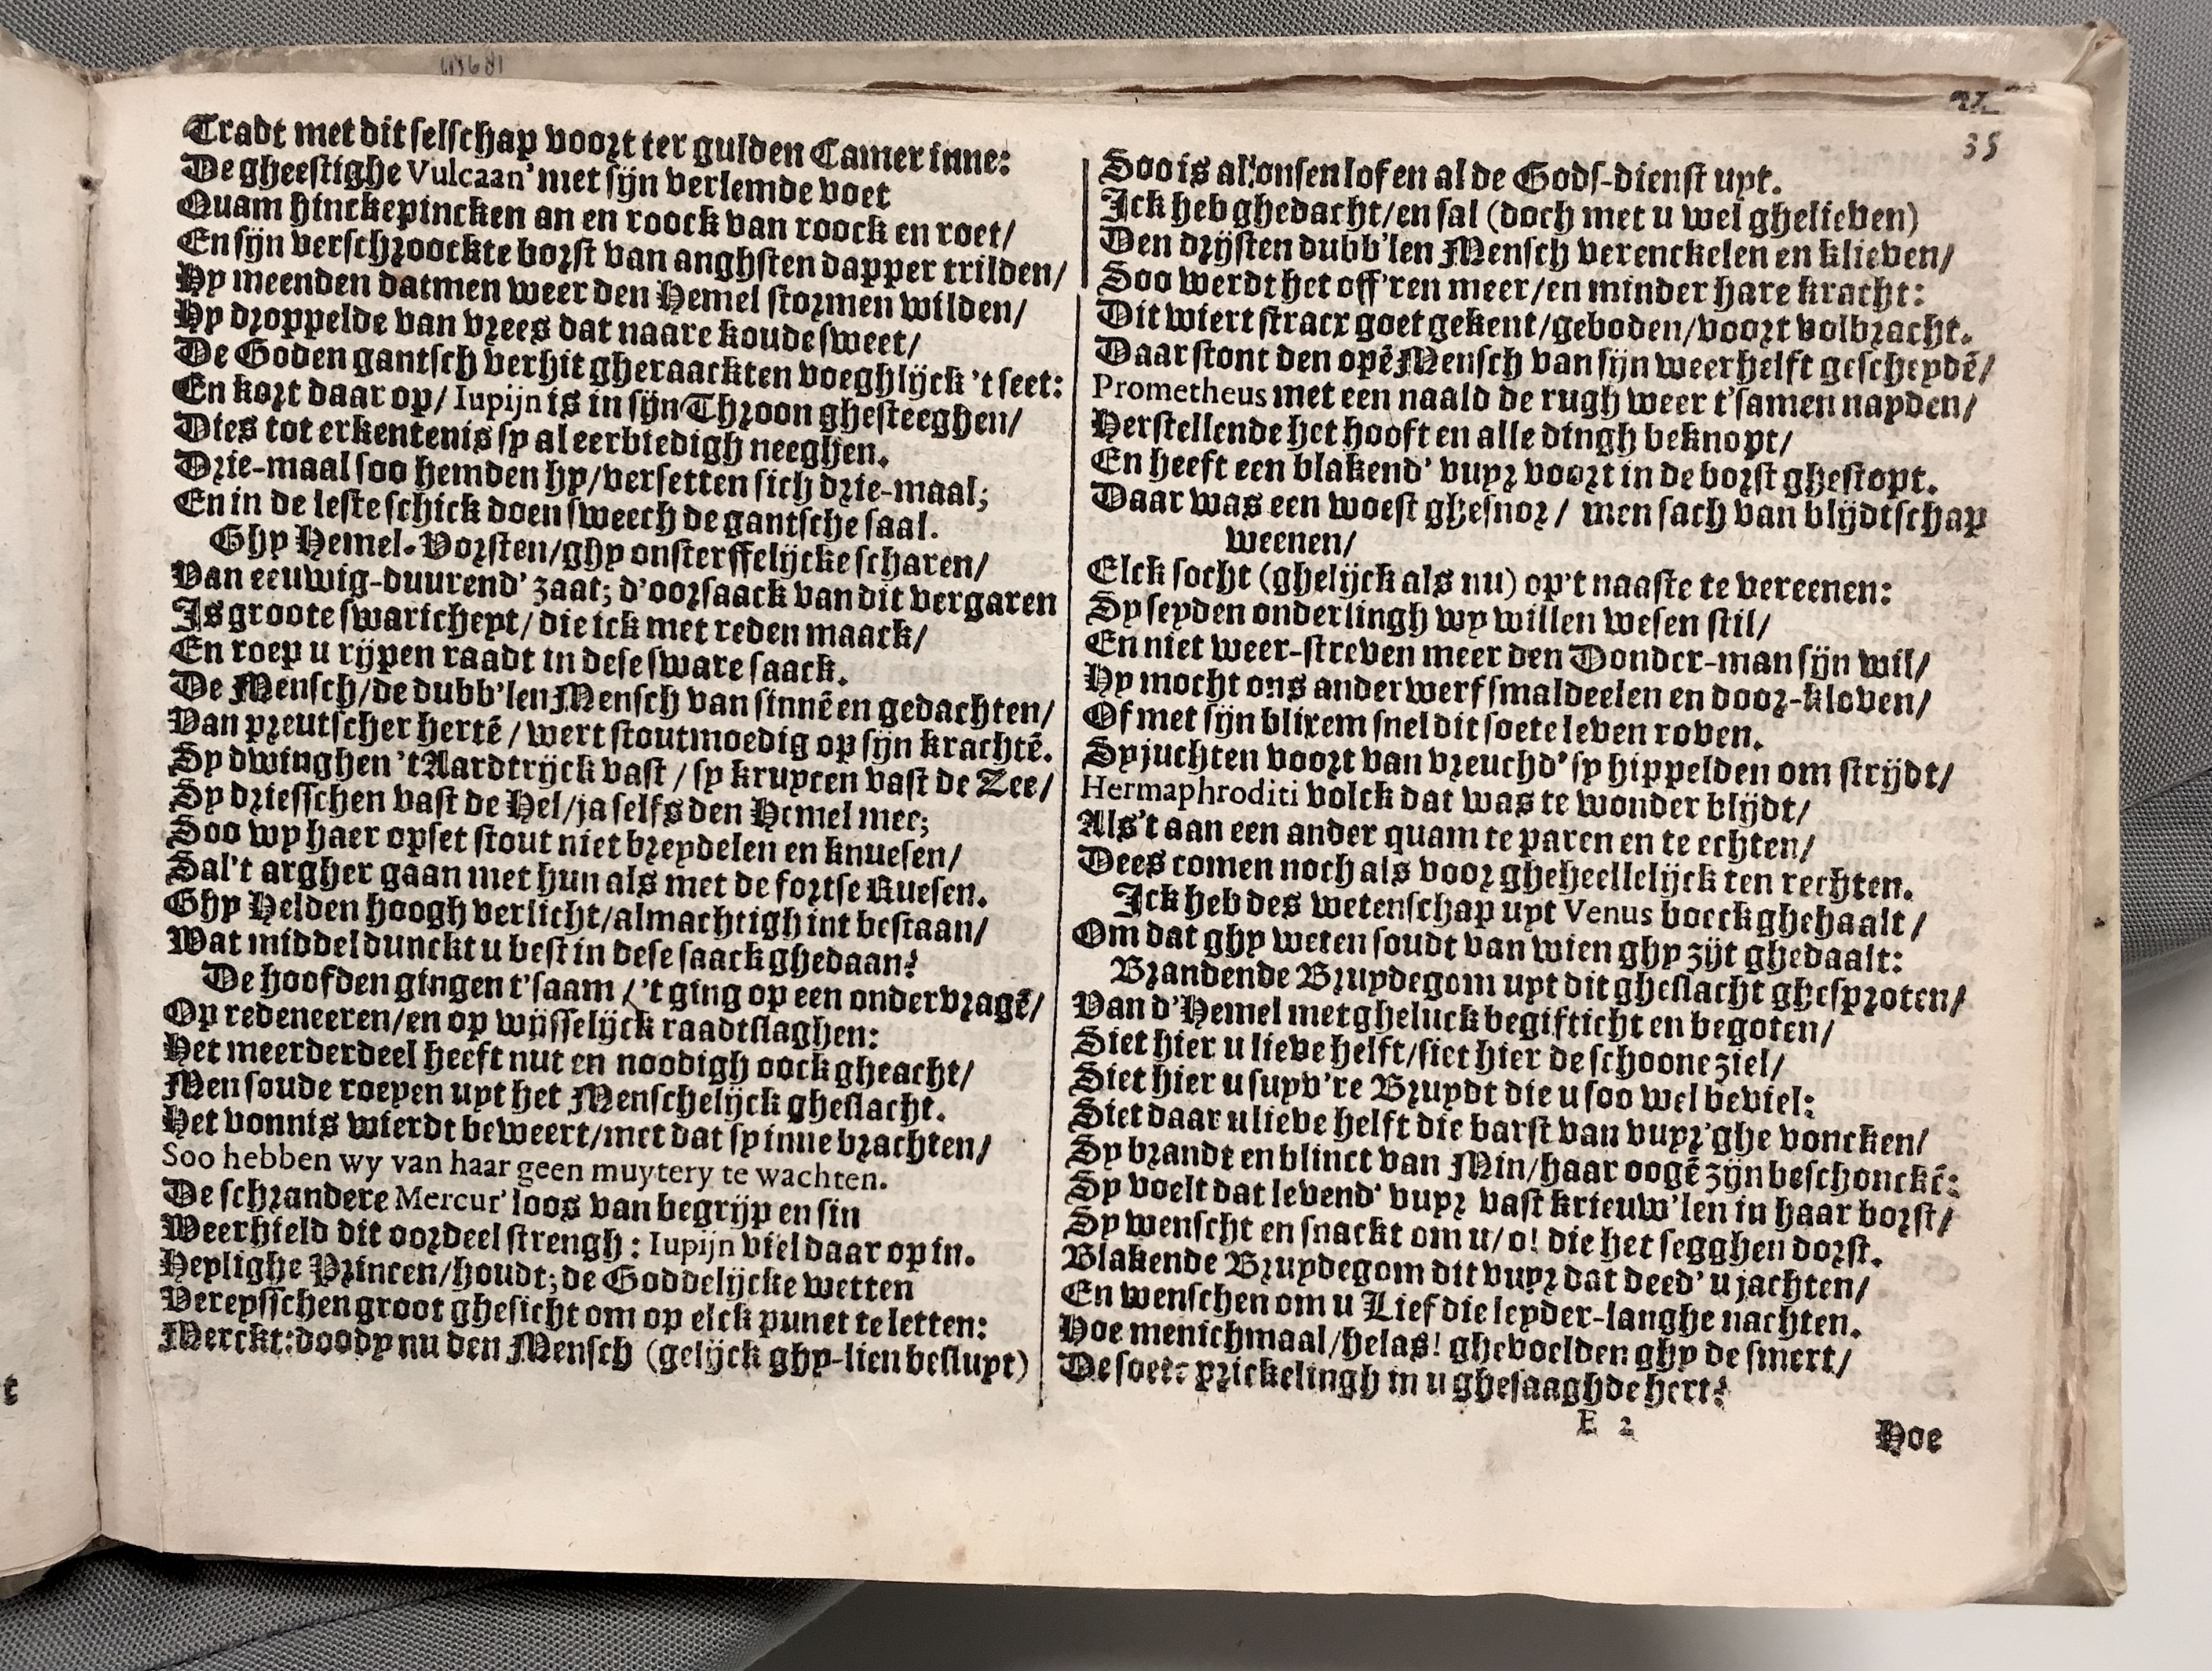 Tradt met dit selschap voort ter gulden Camer inne:
De gheestighe Vulcaan' met sijn verlemde voet
Quam hinckepincken an en roock van roock en roet/
En sijn verschroockte borst van anghsten dapper trilden/
Hy meenden datmen weer den Hemel stormen wilden/
Hy droppelde van vrees dat naare koude sweet/
De Goden gantsch verhit gheraackten voeghlijck 't seet:
En kort daar op/ Iupijn is in sijn Throon ghesteeghen/
Dies tot erkentenis sy al eerbiedigh neeghen.
Drie-maal soo hemden hy/versetten sich drie-maal;
En in de leste schick doen sweech de gantsche saal.
Ghy Hemel-Vorsten/ghy onsterffelijcke scharen/
Van eeuwig-duurend' zaat; d'oorsaack van dit vergaren
Is groote swaricheyt/ die ick met reden maack/
En roep u rijpen raadt in dese sware saack.
De Mensch/de dubb'len Mensch van sinnē en gedachten/
Van preutscher hertē/ wert stoutmoedig op sijn krachtē.
Sy dwinghen 't Aardtrijck vast/ sy kruycen vast de Zee/
Sy driesschen vast de Hel/ja selfs den Hemel mee;
Soo wy haer opset stout niet breydelen en knuesen/
Sal't argher gaan met hun als met de fortse Ruesen.
Ghy Helden hoogh verlicht/almachtigh int bestaan/
Wat middel dunckt u best in dese saack ghedaan?
De hoofden gingen t'saam/ 't ging op een ondervragē/
Op redeneeren/en op wijsselijck raadtslaghen:
Het meerderdeel heeft nut en noodigh oock gheacht/
Men soude roepen uyt het Menschelijck gheslacht.
Het vonnis wierdt beweert/met dat sy inne brachten/
Soo hebben wy van haar geen muytery te wachten.
De schrandere Mercur' loos van begrijp en sin
Weerhield dit oordeel strengh: Iupijn viel daar op in.
Heylighe Princen/houdt; de Goddelijcke wetten
Vereysschen groot ghesicht om op elck punct te letten:
Merckt: doody nu den Mensch (gelijck ghy-lien besluyt)
35
Soo is al 'onsen lof en al de Gods-dienst uyt.
Ick heb ghedacht/en sal (doch met u wel ghelieven)
Den drijsten dubb'len Mensch verenckelen en klieven/
Soo werdt het off'ren meer/en minder hare kracht:
Dit wiert stracx goet gekent/geboden/voort volbracht.
Daar stont den opē Mensch van sijn weerhelft gescheydē/
Prometheus met een naald de rugh weer t'samen nayden/
Herstellende het hooft en alle dingh beknopt/
En heeft een blakend' vuyr voort in de borst ghestopt.
Daar was een woest ghesnor/ men sach van blijdtschap
weenen/
Elck socht (ghelijck als nu) op't naaste te vereenen:
Sy seyden onderlingh wy willen wesen stil/
En niet weer-streven meer den Donder-man sijn wil/
Hy mocht ons anderwerf smaldeelen en door-kloven/
Of met sijn blixem snel dit soete leven roven.
Sy juchten voort van vreuchd' sy hippelden om strijdt/
Hermaphroditi volck dat was te wonder blijdt/
Als't aan een ander quam te paren en te echten/
Dees comen noch als voor gheheellelijck ten rechten.
Ick heb des wetenschap uyt Venus boeck ghehaalt/
Om dat ghy weten soudt van wien ghy zijt ghedaalt:
Brandende Bruydegom uyt dit gheslacht ghesproten/
Van d'Hemel met gheluck begifticht en begoten/
Siet hier u lieve helft/siet hier de schoone ziel/
Siet hier u suyv're Bruydt die u soo wel beviel:
Siet daar u lieve helft die barst van vuyr'ghe voncken/
Sy brandt en blinct van Min/haar oogē zijn beschonckē:
Sy voelt dat levend' vuyr vast krieuw'len in haar borst/
Sy wenscht en snackt om u/o! die het segghen dorst.
Blakende Bruydegom dit vuyr dat deed' u jachten/
En wenschen om u Lief die leyder-langhe nachten.
Hoe menichmaal/helas! ghevoelden ghy de smert/
De soete prickelingh in u ghesaaghde hert?
E 2
Hoe